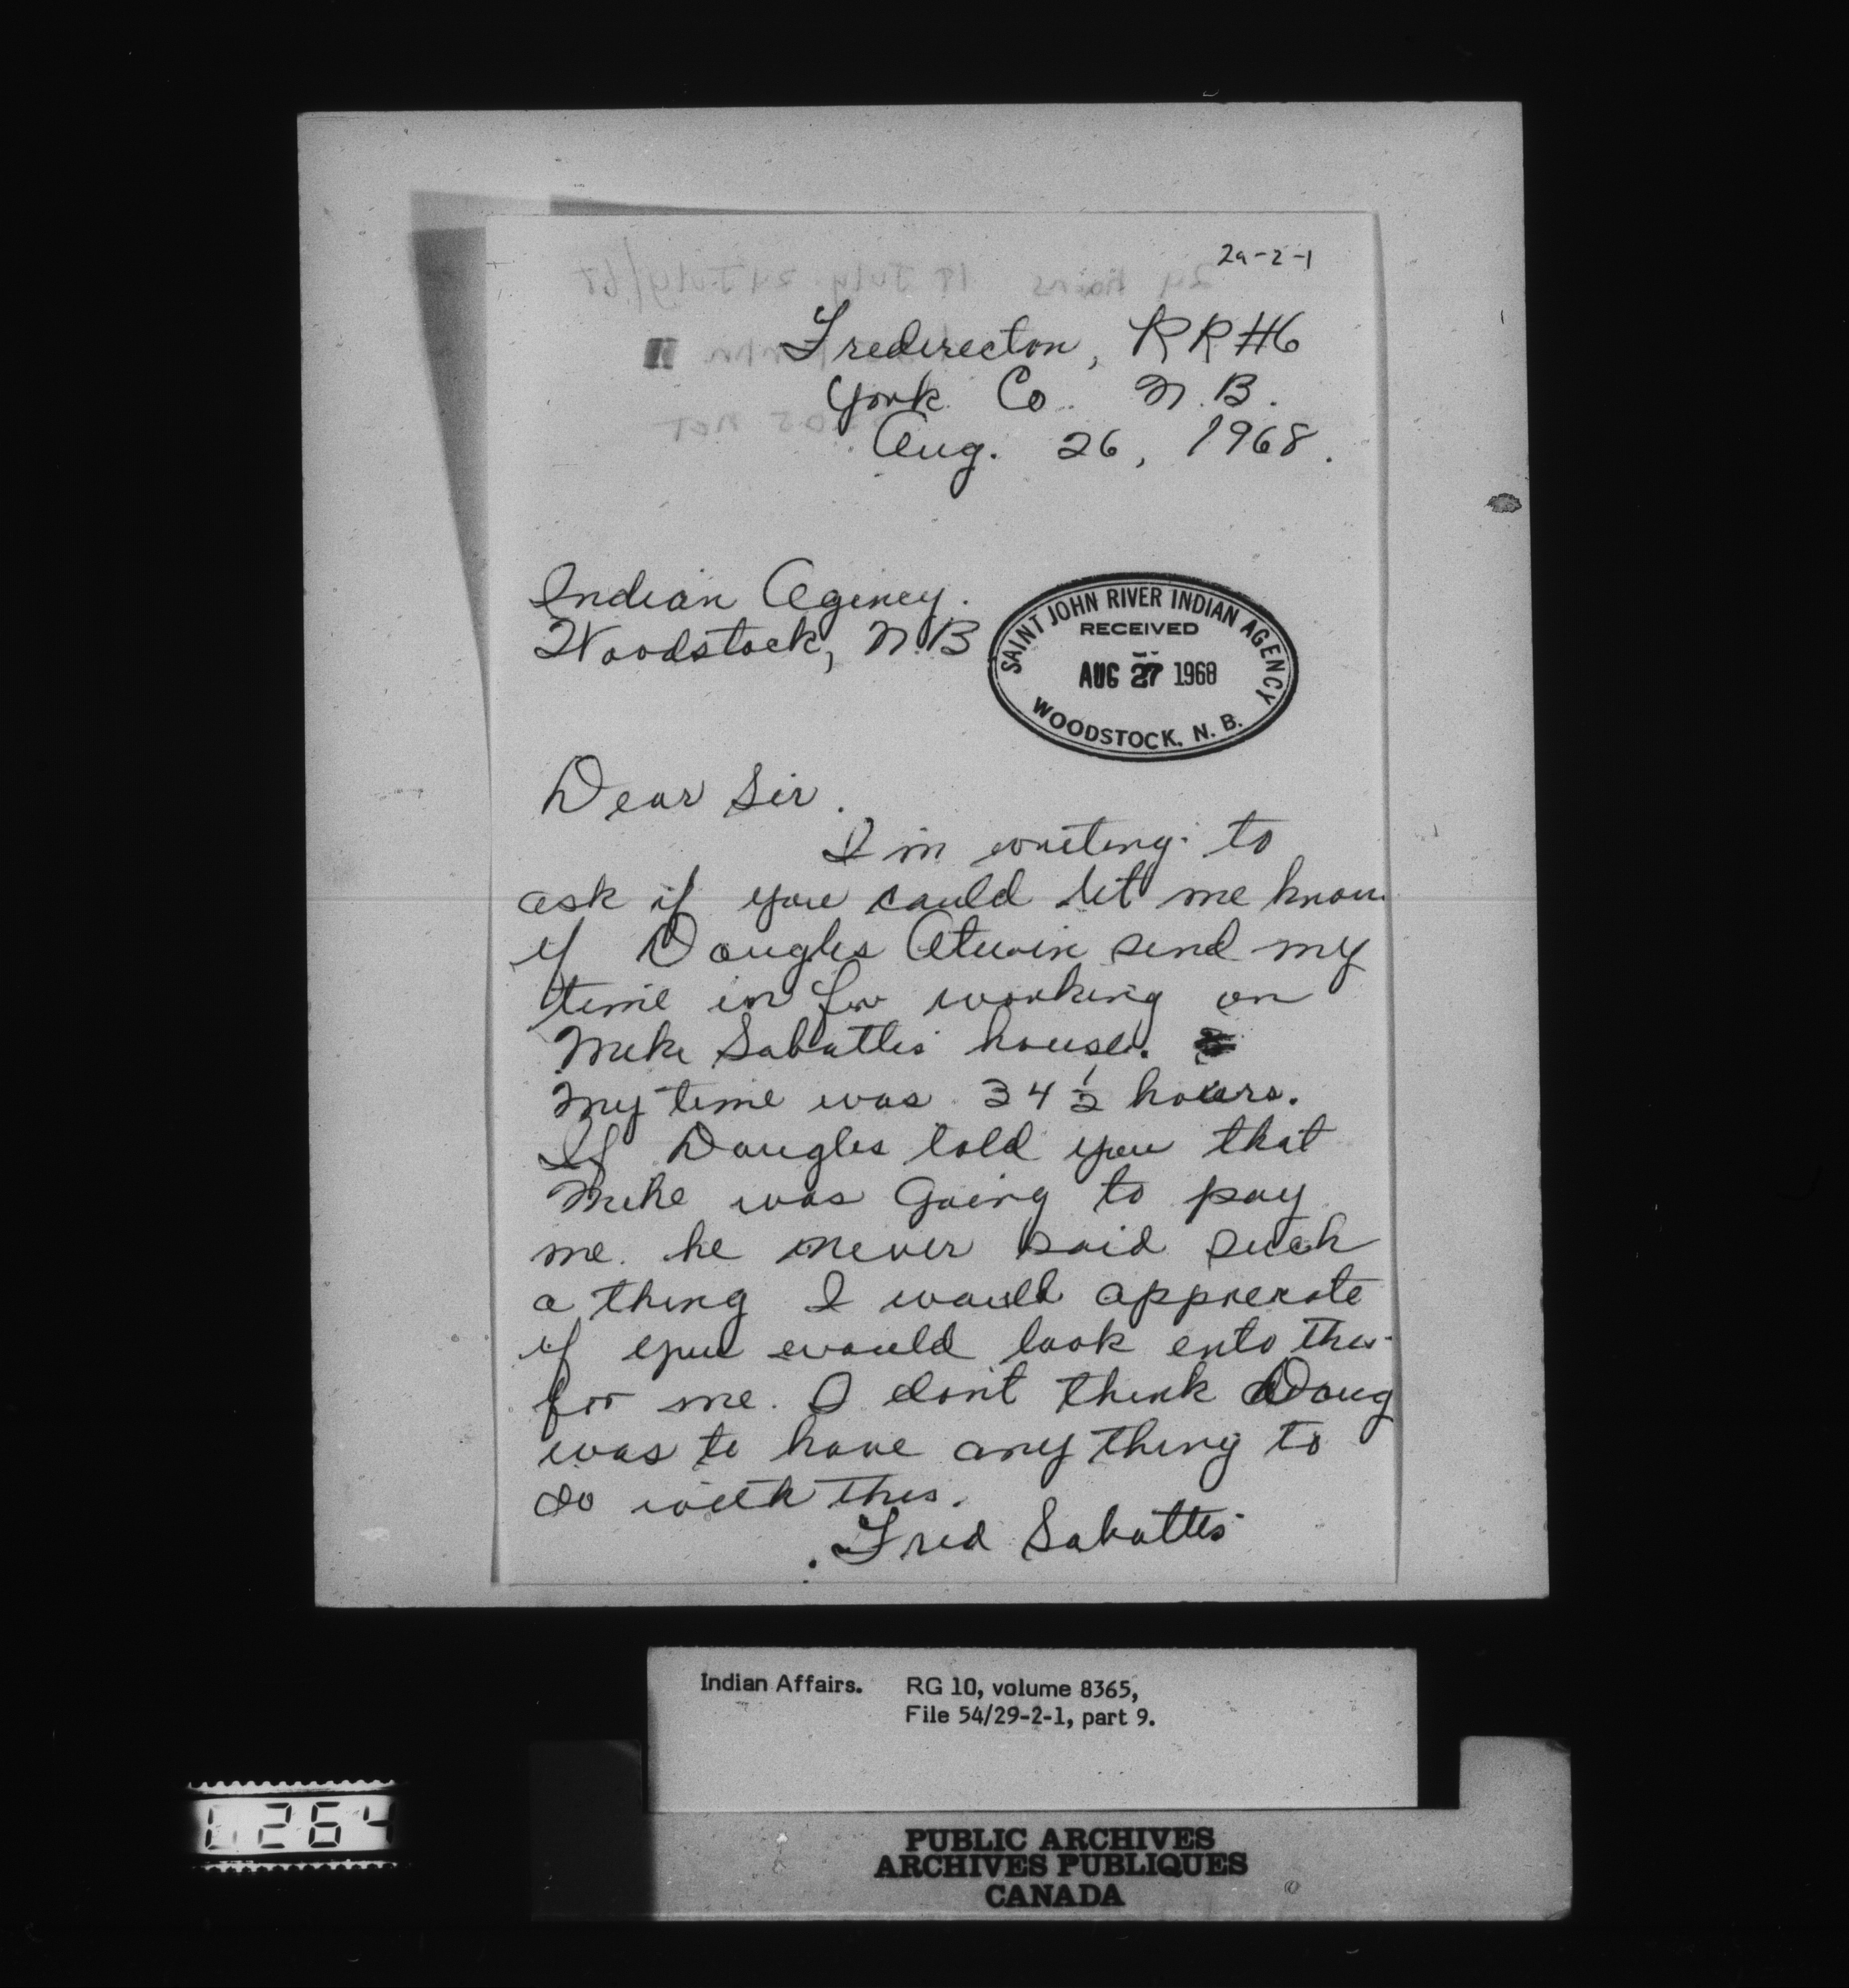 29-2-1
Frederecton, RR#6
York Co. N.B.
Aug. 26, 1968.
Indian Agency.
Woodstock, N.B
SAINT JOHN RIVER INDIAN AGENCY
RECEIVED
AUG 27 1968
WOODSTOCK, N. B.
Dear Sir.
I'm writing to
ask if you could let me know
if Dougles Atwin send my
time in for working on
Mike Sabattis house.
My time was 34 1/2 hours.
If Dougles told you that
Mike was Going to pay
me. he never said such
a thing I would apprerate
if you would look ento this
for me. I don't think Doug
was to have any thing to
do with this.
Fred Sabattis
Indian Affairs. RG 10, volume 8365,
File 54/29-2-1, part 9.
264
PUBLIC ARCHIVES
ARCHIVES PUBLIQUES
CANADA